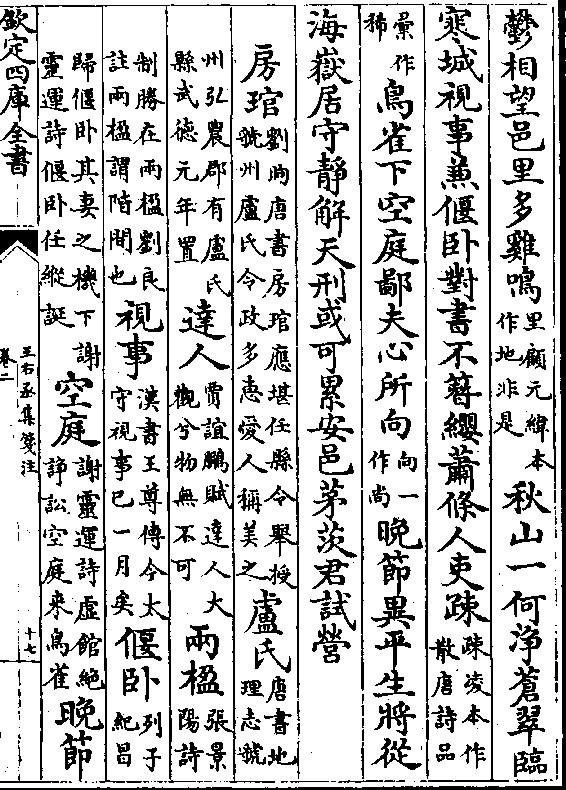 鬱相望邑里多雞鳴里顧元緯本作地非是秋山一何淨蒼翠臨
寒城視事兼偃卧對書不簪纓蕭條人吏疎疎凌本作散唐詩品
彚作稀鳥雀下空庭鄙夫心所向向一作尚晚節異平生將從
海嶽居守靜解天刑或可累安邑茅茨君試營
房琯劉昫唐書房琯應堪任縣令舉授虢州盧氏令政多惠愛人稱美之盧氏唐書地理志虢
州弘農郡有盧氏縣武德元年置達人賈誼鵬賦達人大觀兮物無不可兩楹張景陽詩
制勝在兩楹劉良註兩楹謂階間也視事漢書王尊傳今太守視事已一月矣偃卧列子紀昌
歸偃卧其妻之機下謝靈運詩偃卧任縱誕空庭謝靈運詩虛館絕諍訟空庭来鳥雀晚節
欽定四庫全書
王右丞集箋注
卷二
十七